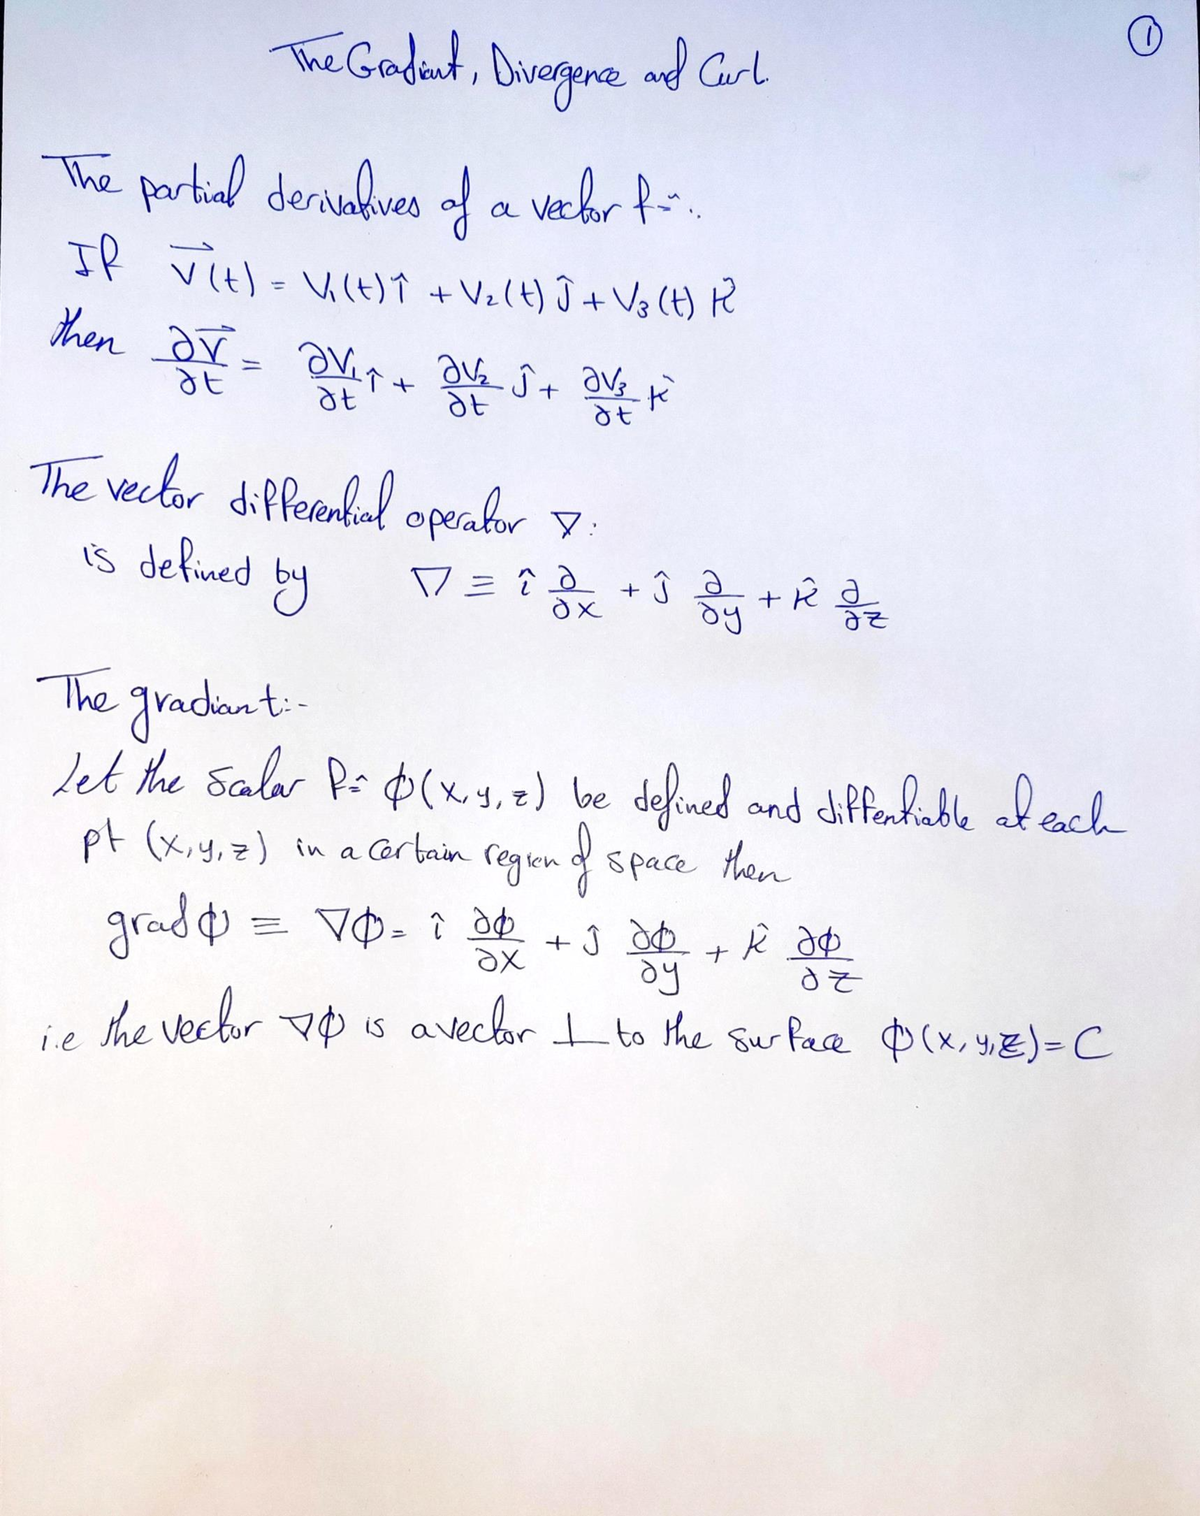 ①
The Gradient, Divergence and Curl.
The partial derivatives of a vector fⁿ:.
If V⃗(t) = V₁(t) î + V₂(t) ĵ + V₃(t) k̂
then ∂V⃗/∂t = ∂V₁/∂t î + ∂V₂/∂t ĵ + ∂V₃/∂t k̂
The vector differential operator ∇:
is defined by ∇ ≡ î ∂/∂x + ĵ ∂/∂y + k̂ ∂/∂z
The gradiant:-
Let the scalar fⁿ ϕ(x,y,z) be defined and diffentiable at each
pt (x,y,z) in a certain region of space then
grad ϕ ≡ ∇ϕ = î ∂ϕ/∂x + ĵ ∂ϕ/∂y + k̂ ∂ϕ/∂z
i.e the vector ∇ϕ is a vector ⊥ to the surface ϕ(x,y,z)=C